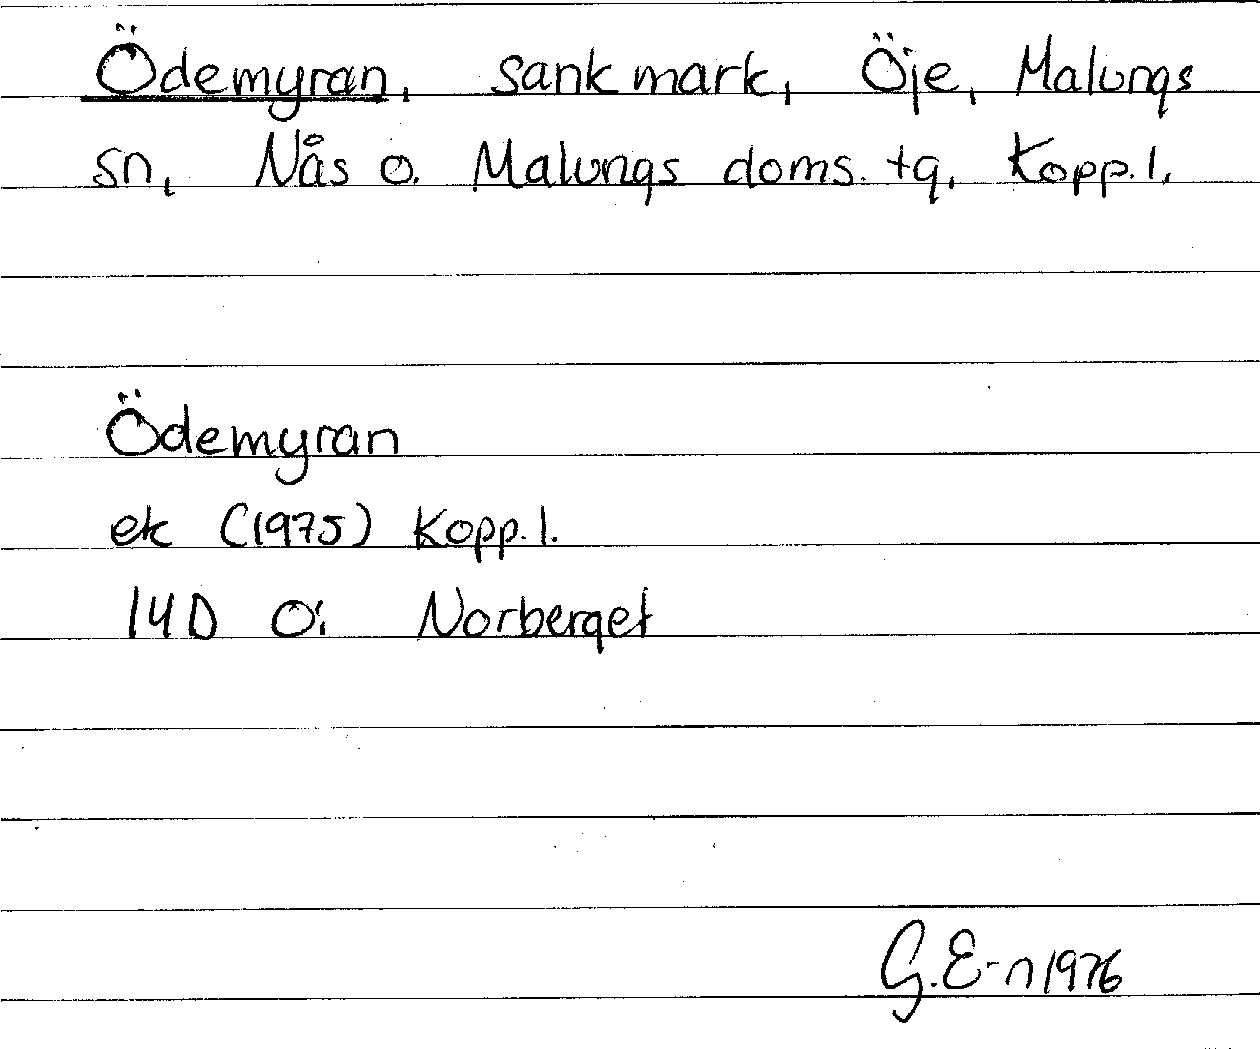 Ödemyran, sank mark, Öje, Malungs
sn, Nås o. Malungs doms. tg, Kopp. l.
Ödemyran
ek (1975) Kopp. l.
14D Norberget
G. E-n 1976